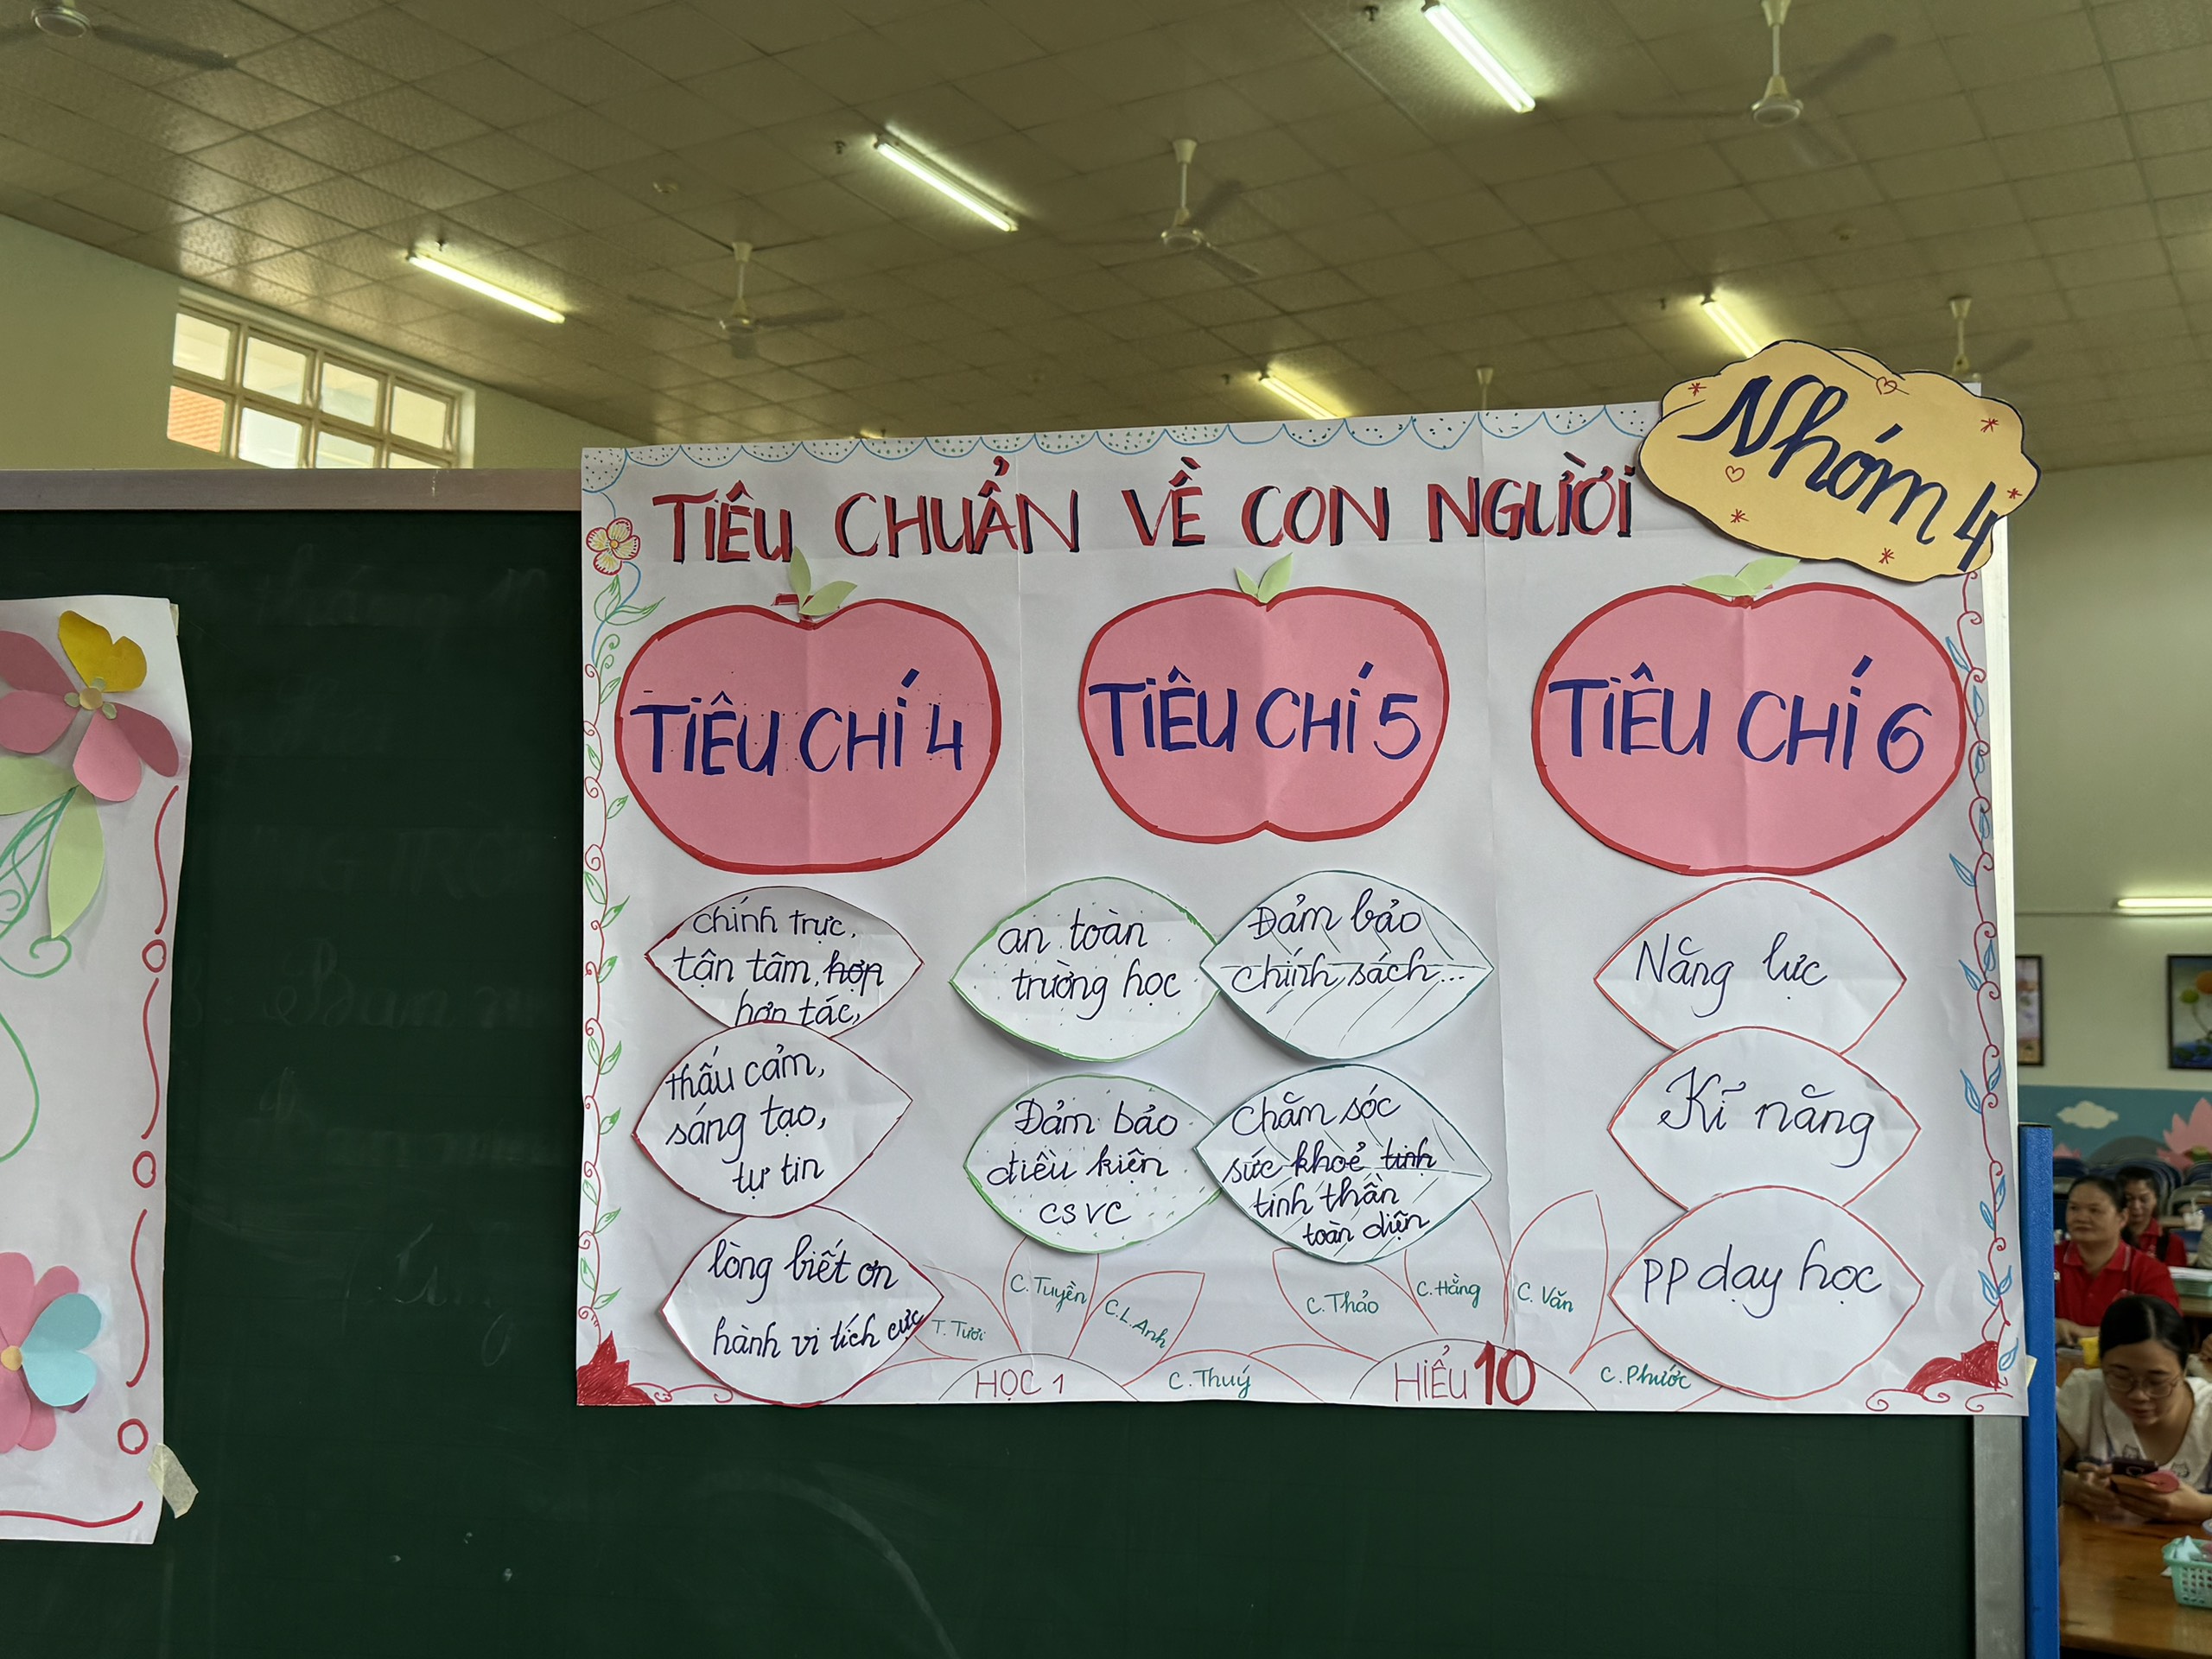 TIÊU CHUẨN VỀ CON NGƯỜI
Nhóm 4
TIÊU CHÍ 4
TIÊU CHÍ 5
TIÊU CHÍ 6
chính trực,
tận tâm, hợp
hợp tác,
thấu cảm,
sáng tạo,
tự tin
lòng biết ơn
hành vi tích cực
an toàn
trường học
Đảm bảo
chính sách...
Đảm bảo
điều kiện
CSVC
Chăm sóc
sức khoẻ tinh
tinh thần
toàn diện
Năng lực
Kĩ năng
PP dạy học
T. Tươi
C. Tuyền
C.L.Anh
C. Thuý
C. Thảo
C. Hằng
C. Văn
C. Phước
HỌC 1
HIỂU 10